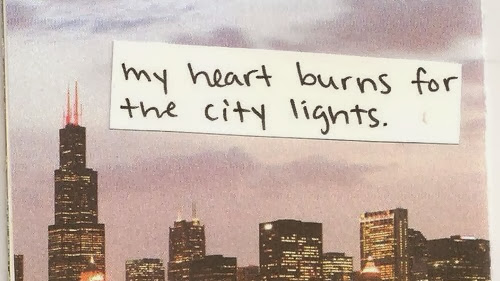 my heart burns for
the city lights.